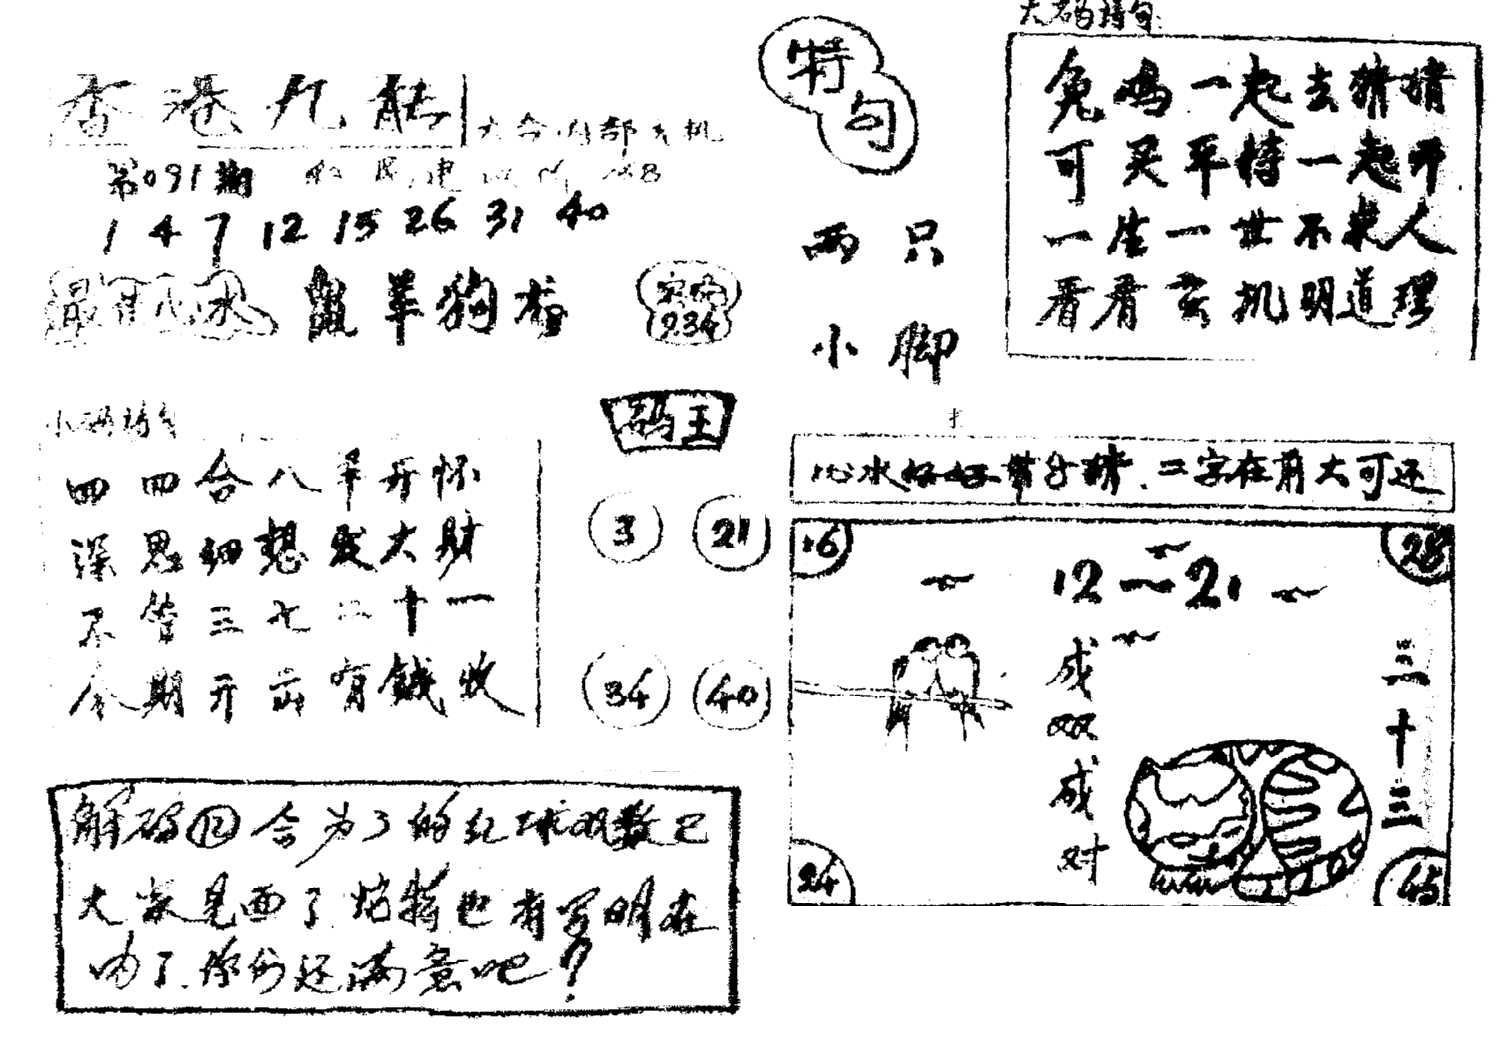 香港九龍
六合内部玄机
第091期
1 4 7 12 15 26 31 40
羊狗
934
小码诗句
四四合八羊开怀
深思细想发大财
不管三七二十一
今期开出有钱收
码王
3 21
34 40
解码⑫合为了的红球双数已
大家见面了
也有写明在
内了.你们还满意吧?
特句
两只
小脚
大码诗句:
兔鸡一起去猜猜
可买平特一起开
一生一世不求人
看看玄机明道理
心水好好带身猜.二字在前大可还
16 28
12一21
成双成对
三十三
24 45